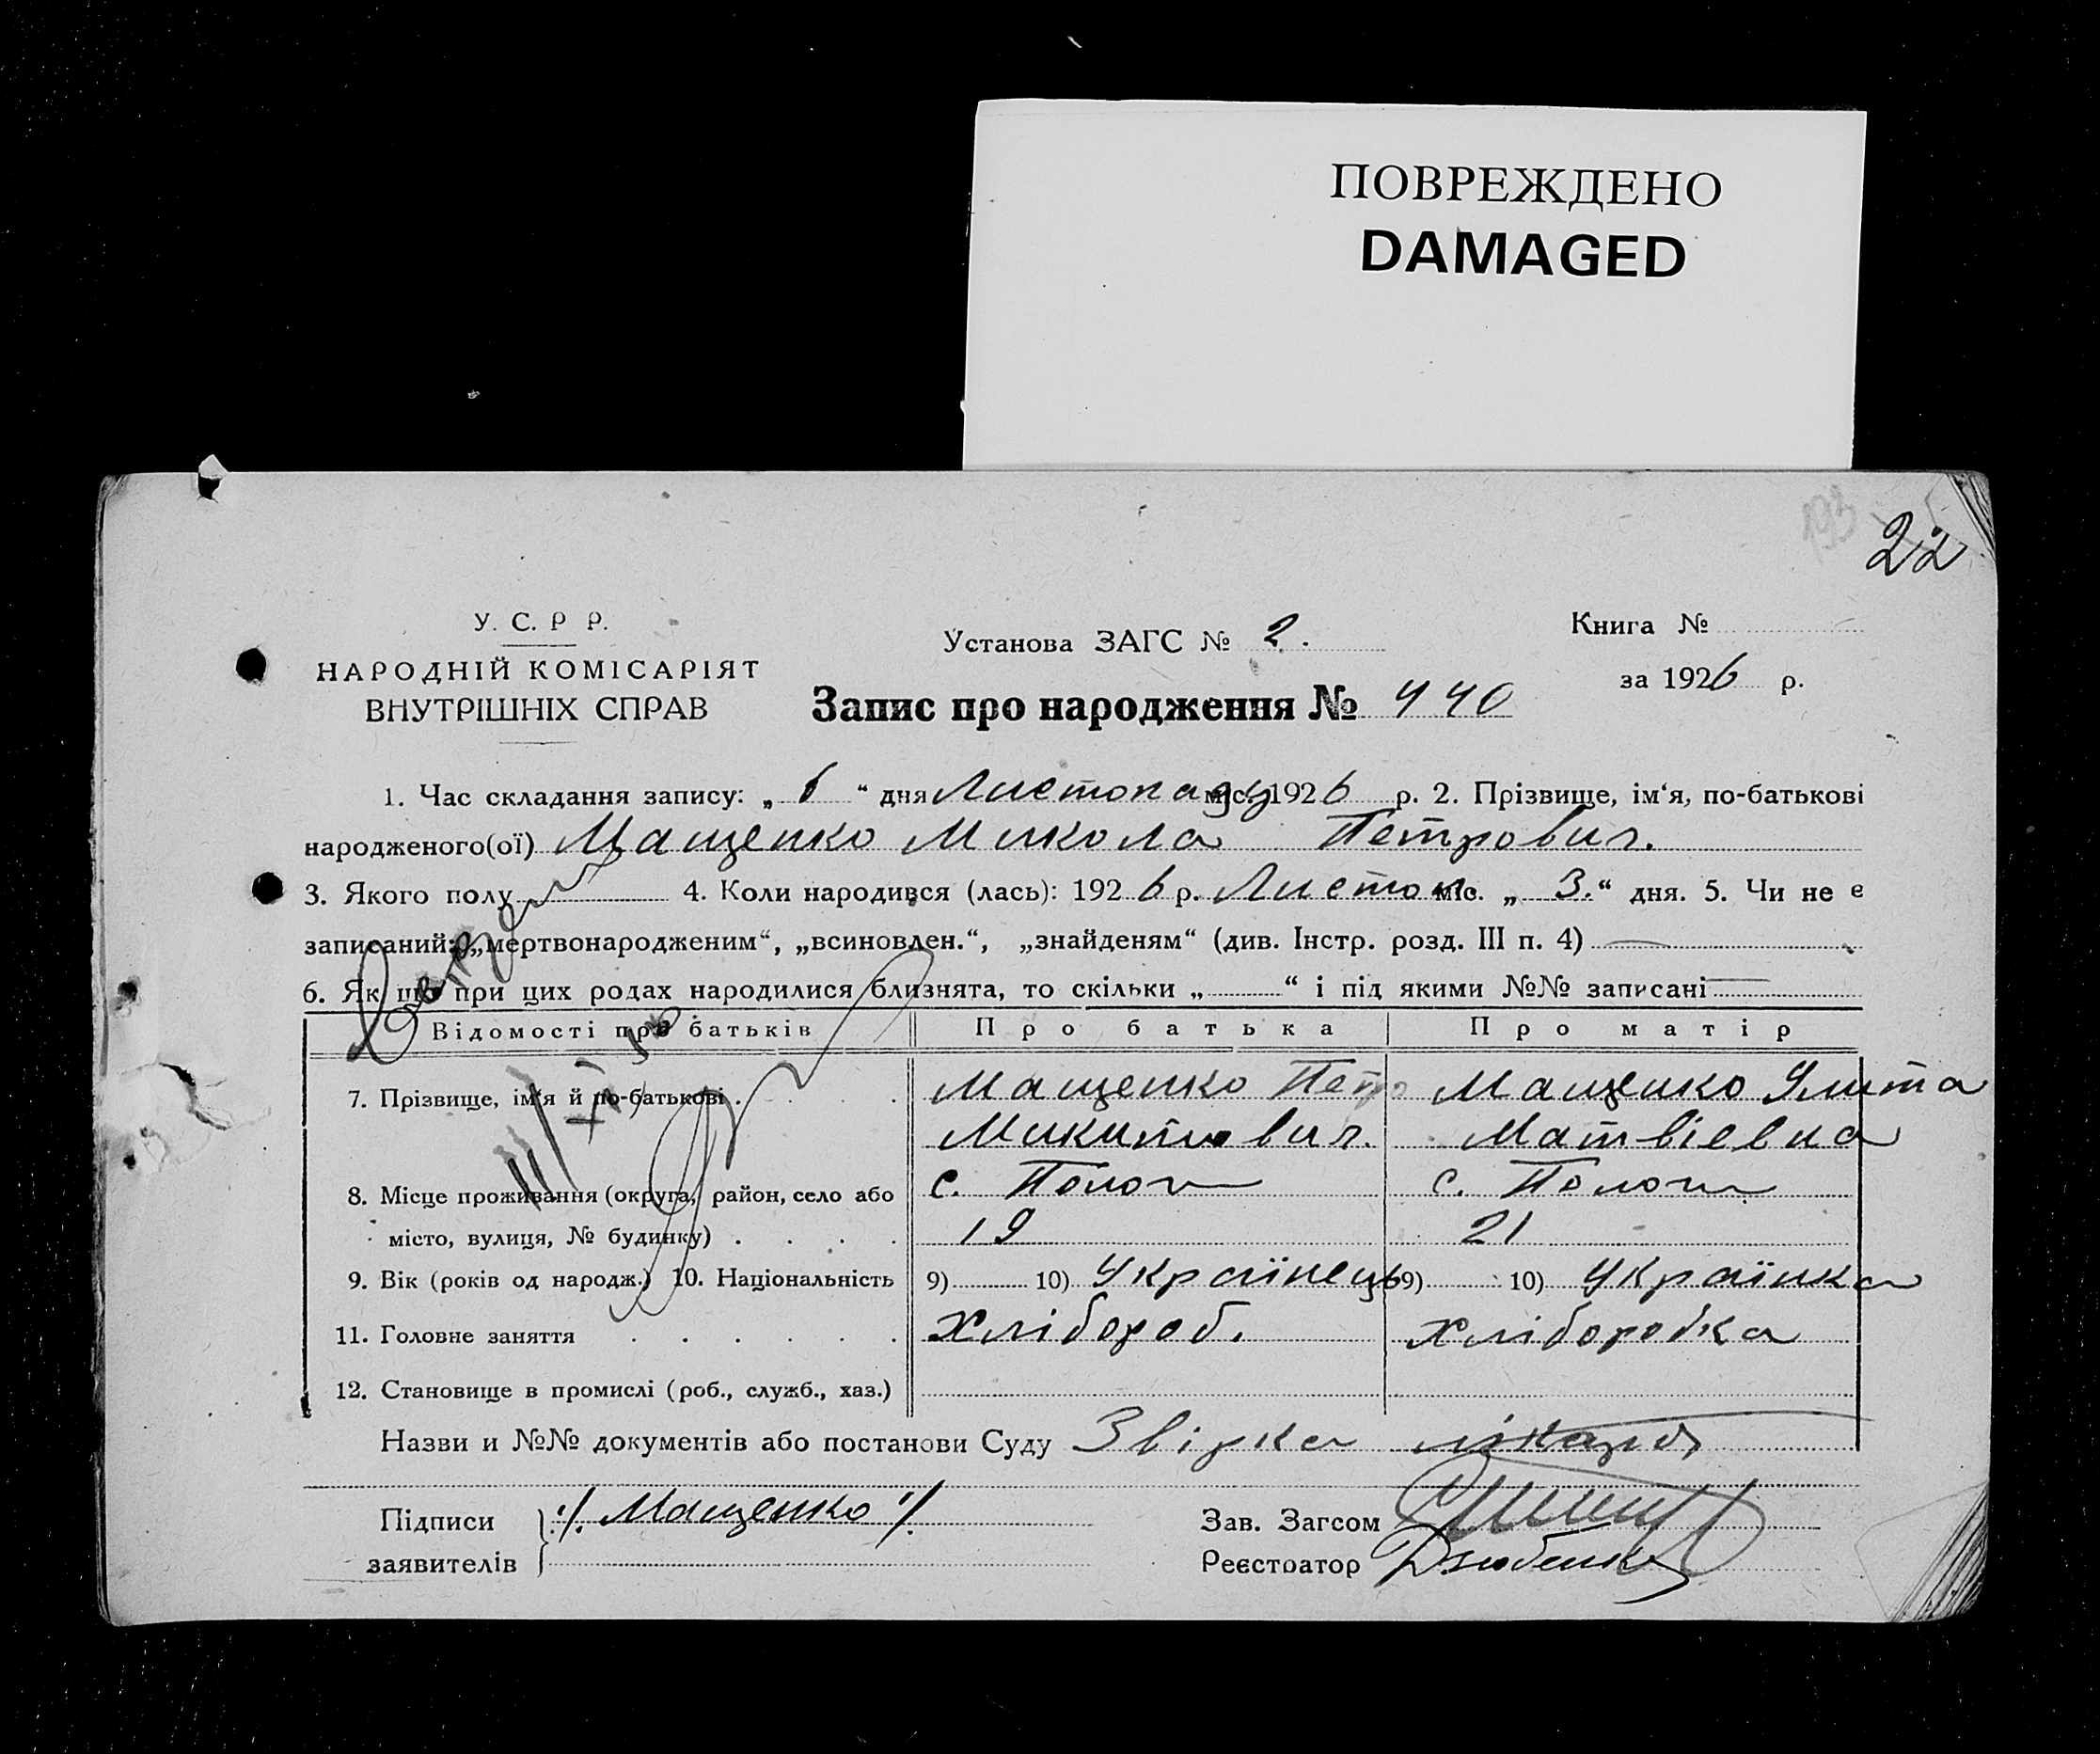 ПОВРЕЖДЕНО
DAMAGED
193
22
У. С. Р Р.
НАРОДНІЙ КОМІСАРІЯТ
ВНУТРІШНІХ СПРАВ
Установа ЗАГС № 2.
Запис про народження № 440
Книга №
за 1926 р.
1. Час складання запису: „ 6 “ дня Листопаду міс. 1926 р. 2. Прізвище, ім‘я, по-батькові
народженого(ої) Мащенко Микола Петрович.
3. Якого полу ч 4. Коли народився (лась): 1926 р. Листоп. міс. „ 3. “ дня. 5. Чи не є
записаний: „мертвонародженим“, „всиновлен.“, „знайденям“ (див. Інстр. розд. III п. 4)
6. Як що при цих родах народилися близнята, то скільки „ “ і під якими №№ записані
Відомості про батьків Про батька Про матір
7. Прізвище, ім‘я й по-батькові Мащенко Петро Мащенко Улита
Микитович. Матвієвна
8. Місце проживання (округа, район, село або с. Полог с. Полог
місто, вулиця, № будинку) 19 21
9. Вік (років од народж.) 10. Національність 9) 10) Українець 9) 10) Українка
11. Головне заняття Хлібороб. Хліборобка
12. Становище в промислі (роб., служб., хаз.)
Назви и №№ документів або постанови Суду Звірка лікаря
Підписи заявителів /. Мащенко /.
Зав. Загсом
Реєстратор Дзюбенко